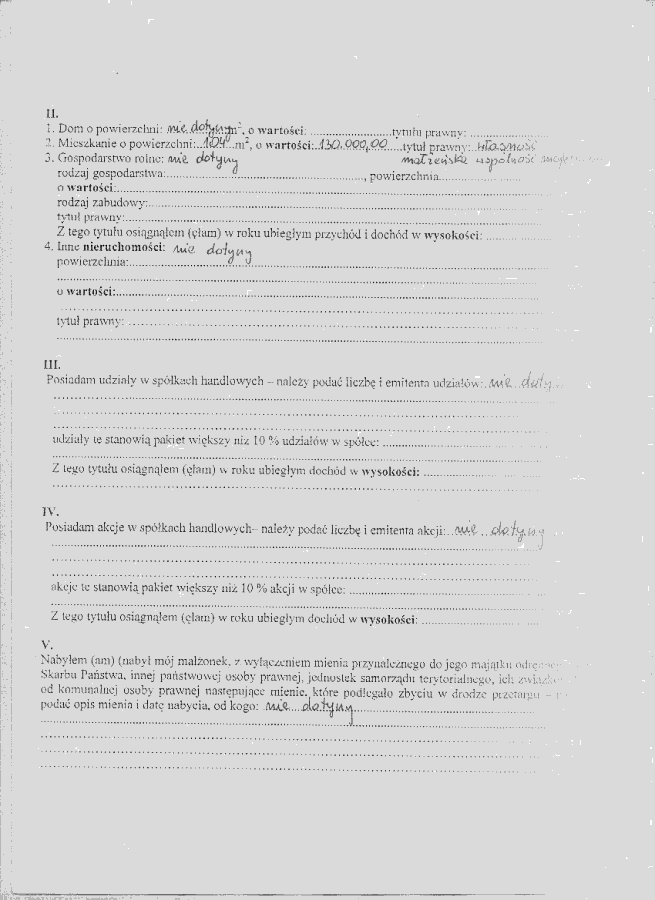 II.
1. Dom o powierzchni: nie dotyczy m², o wartości: ........ tytułu prawny: ........
2. Mieszkanie o powierzchni: ........ m², o wartości: 130.000,00 tytuł prawny: własność
małżeńska wspólność
3. Gospodarstwo rolne: nie dotyczy
rodzaj gospodarstwa: ........, powierzchnia ........
o wartości: ........
rodzaj zabudowy: ........
tytuł prawny: ........
Z tego tytułu osiągnąłem (ęłam) w roku ubiegłym przychód i dochód w wysokości: ........
4. Inne nieruchomości: nie dotyczy
powierzchnia: ........
o wartości: ........
tytuł prawny: ........
III.
Posiadam udziały w spółkach handlowych – należy podać liczbę i emitenta udziałów: nie
udziały te stanowią pakiet większy niż 10 % udziałów w spółce: ........
Z tego tytułu osiągnąłem (ęłam) w roku ubiegłym dochód w wysokości: ........
IV.
Posiadam akcje w spółkach handlowych– należy podać liczbę i emitenta akcji: nie dotyczy
akcje te stanowią pakiet większy niż 10 % akcji w spółce: ........
Z tego tytułu osiągnąłem (ęłam) w roku ubiegłym dochód w wysokości: ........
V.
Nabyłem (am) (nabył mój małżonek, z wyłączeniem mienia przynależnego do jego majątku
Skarbu Państwa, innej państwowej osoby prawnej, jednostek samorządu terytorialnego, ich
od komunalnej osoby prawnej następujące mienie, które podlegało zbyciu w drodze przetargu –
podać opis mienia i datę nabycia, od kogo: nie dotyczy